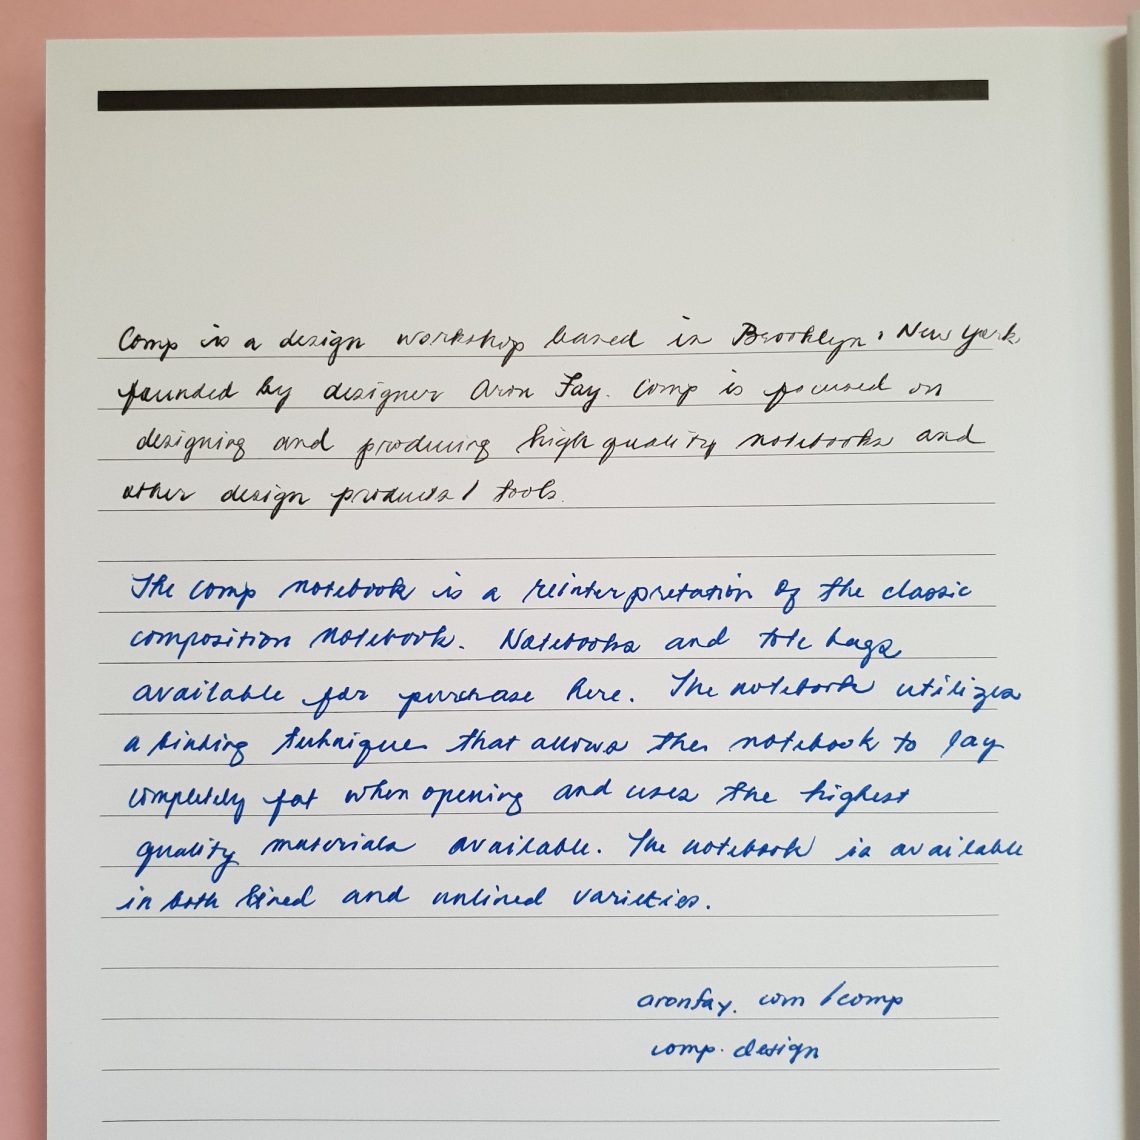 Comp is a design workshop based in Brooklyn, New York
founded by designer Aron Fay. Comp is focused on
designing and producing high quality notebooks and
other design products / tools.
The comp notebook is a reinterpretation of the classic
composition notebook. Notebooks and tote bags
available for purchase here. The notebook utilizes
a binding technique that allows the notebook to lay
completely fat when opening and uses the highest
quality materials available. The notebook is available
in both lined and unlined varieties.
aronfay.com/comp
comp.design